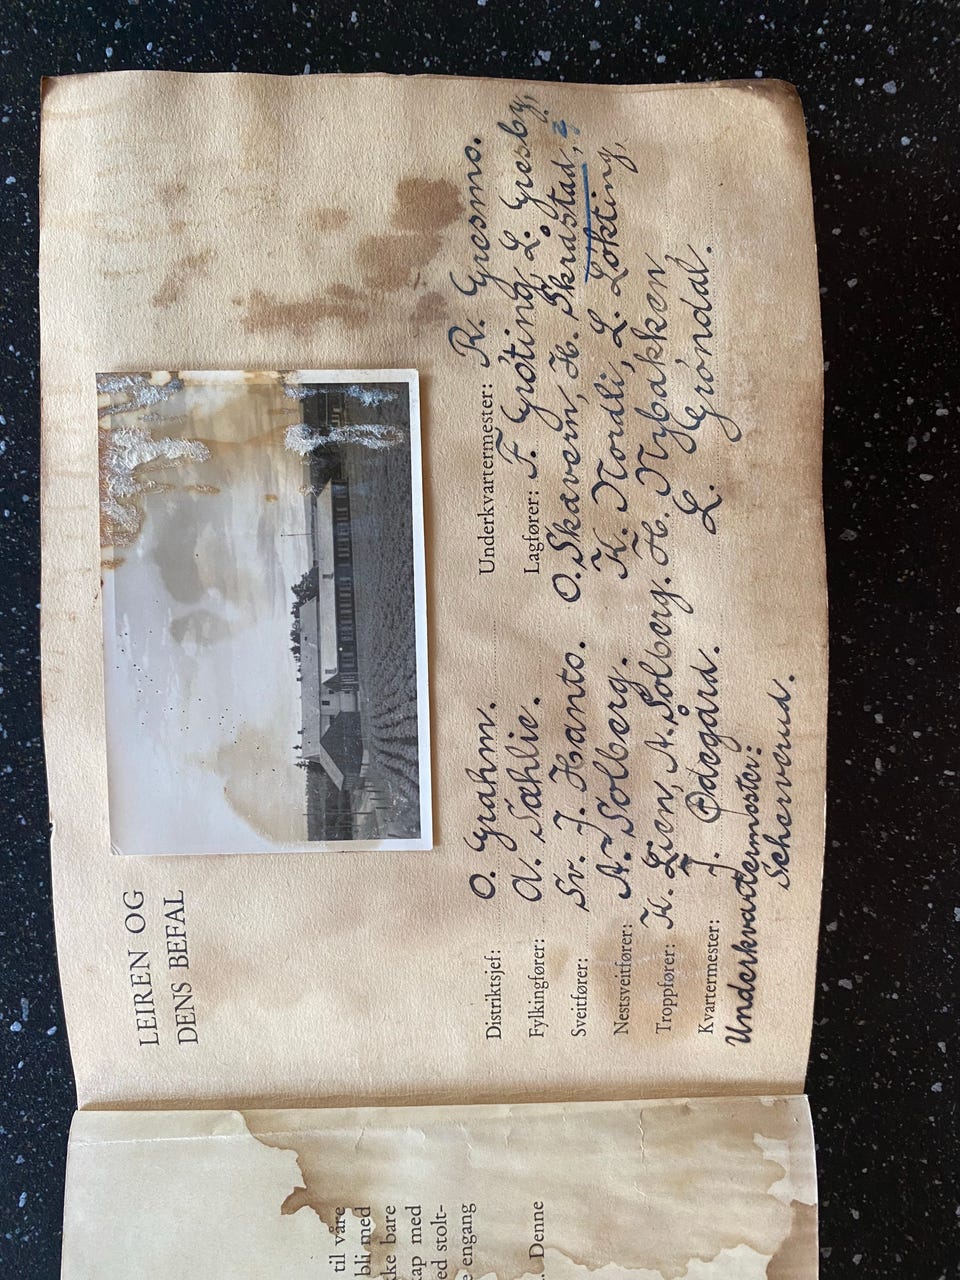 LEIREN OG
DENS BEFAL
Distriktsjef: O. Grahm.
Fylkingfører: A. Sæhlie.
Sveitfører: Sv. J. Hanto.
Nestsveitfører: A. Solberg.
Troppfører: K. Lien, A. Solberg. H. Nybakken
Kvartermester: J. Ødegård. L. Grøndal.
Underkvartermester:
Scherverud.
Underkvartermester: R. Gresmo.
Lagfører: F. Grøting, L. Gresby,
O. Skavern, H. Skråstad,
K. Nordli, L. Løkting,
til våre
bli med
ke bare
ap med
ed stolt-
e engang
Denne